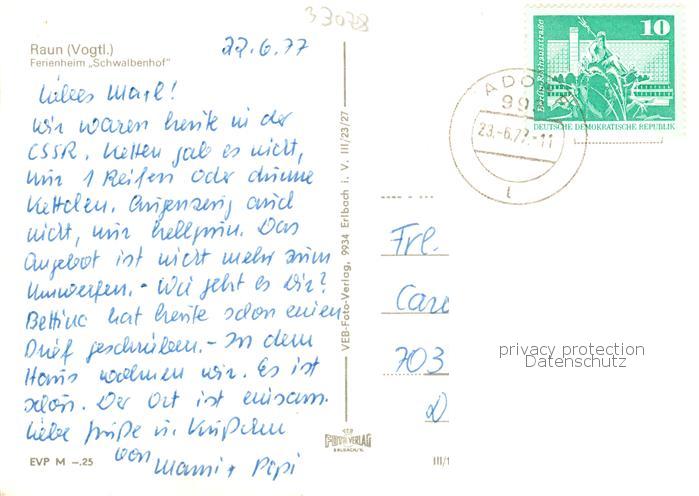 33028
Raun (Vogtl.)
Ferienheim „Schwalbenhof"
22.6.77
Liebes Masel!
Wir waren heute in der
CSSR. Ketten gab es nicht,
nur 1 Reifen oder dünne
Kettchen. Anzug auch
nicht, nur hellgrün. Das
Angebot ist nicht mehr zum
Umwerfen. - Wie geht es Dir?
Bettina hat heute schon einen
Brief geschrieben. - In dem
Haus wohnen wir. Es ist
schön. Der Ort ist einsam.
Liebe Grüße u. Küßchen
von Mami + Papi
EVP M –.25
VEB-Foto-Verlag, 9934 Erlbach i. V. III/23/27
VEB
FOTO VERLAG
ERLBACH/V.
III/1
10
Berlin-Rathausstraße
DEUTSCHE DEMOKRATISCHE REPUBLIK
ADO
99
23.-6.77.-11
t
Frl.
703
privacy protection
Datenschutz